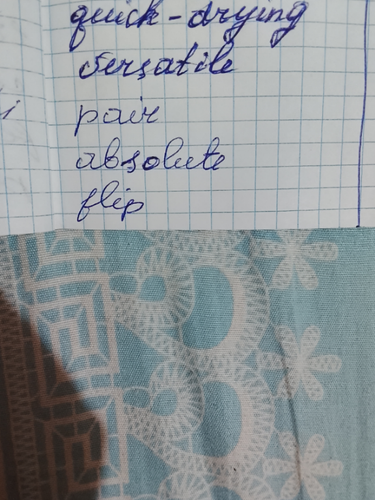 quick-drying
versatile
pair
absolute
flip